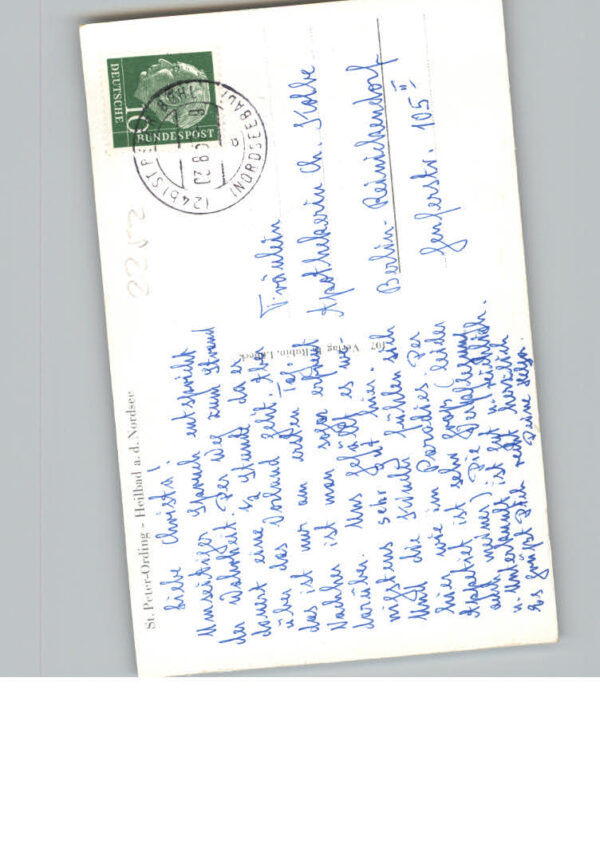 St. Peter-Ording – Heilbad a. d. Nordsee
Liebe Christa!
Umseitiger Spruch entspricht
der Wahrheit. Der Weg zum Strand
dauert eine ½ Stunde da er
über das Vorland geht. Aber
das ist nur am ersten Tag.
Nachher ist man sogar erfreut
darüber. Uns gefällt es we-
nigstens sehr gut hier.
Und die Kinder fühlen sich
hier wie im Paradies. Der
Appetit ist sehr groß (leider
auch meiner) Die Verpflegung
u. Unterkunft ist gut u. reichlich.
Es grüßt Dich recht herzlich
Deine
107 Verlag Rubin, Lübeck
DEUTSCHE
BUNDESPOST
10
(24b) ST. PETER
(NORDSEEBAD)
a
2252
Fräulein
Apothekerin Ch. Kolbe
Berlin-Reinickendorf
Genferstr. 105 II